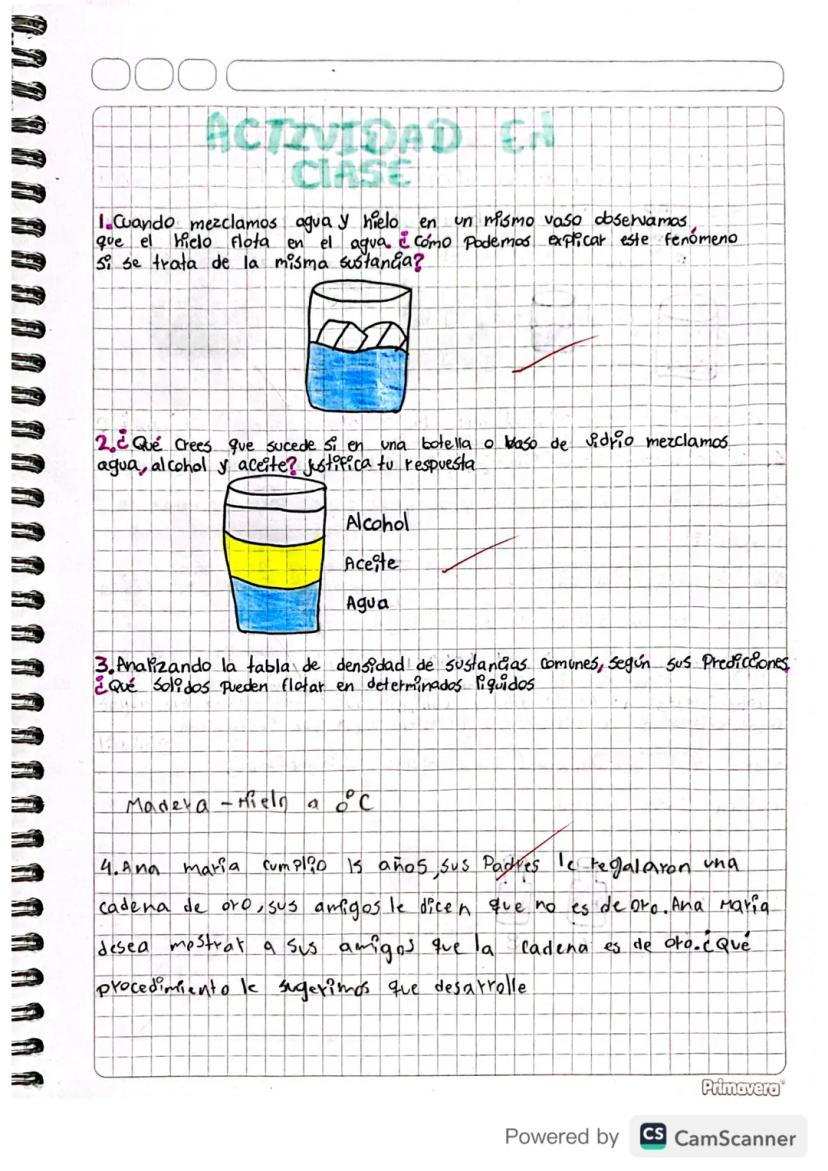 ACTIVIDAD EN
CLASE
1. Cuando mezclamos agua y hielo en un mismo vaso observamos
que el hielo flota en el agua ¿Cómo Podemos explicar este fenómeno
si se trata de la misma sustancia?
2. ¿Qué crees que sucede si en una botella o vaso de vidrio mezclamos
agua, alcohol y aceite? justifica tu respuesta
Alcohol
Aceite
Agua
3. Analizando la tabla de densidad de sustancias comunes, según sus Predicciones
¿Qué solidos pueden flotar en determinados liquidos
Madera - Hielo a 0°C
4. Ana maria cumplio 15 años, sus Padres le regalaron una
cadena de oro, sus amigos le dicen que no es de oro. Ana Maria
desea mostrar a sus amigos que la cadena es de oro. ¿Qué
procedimiento le sugerimos que desarrolle
Primavera
Powered by CS CamScanner